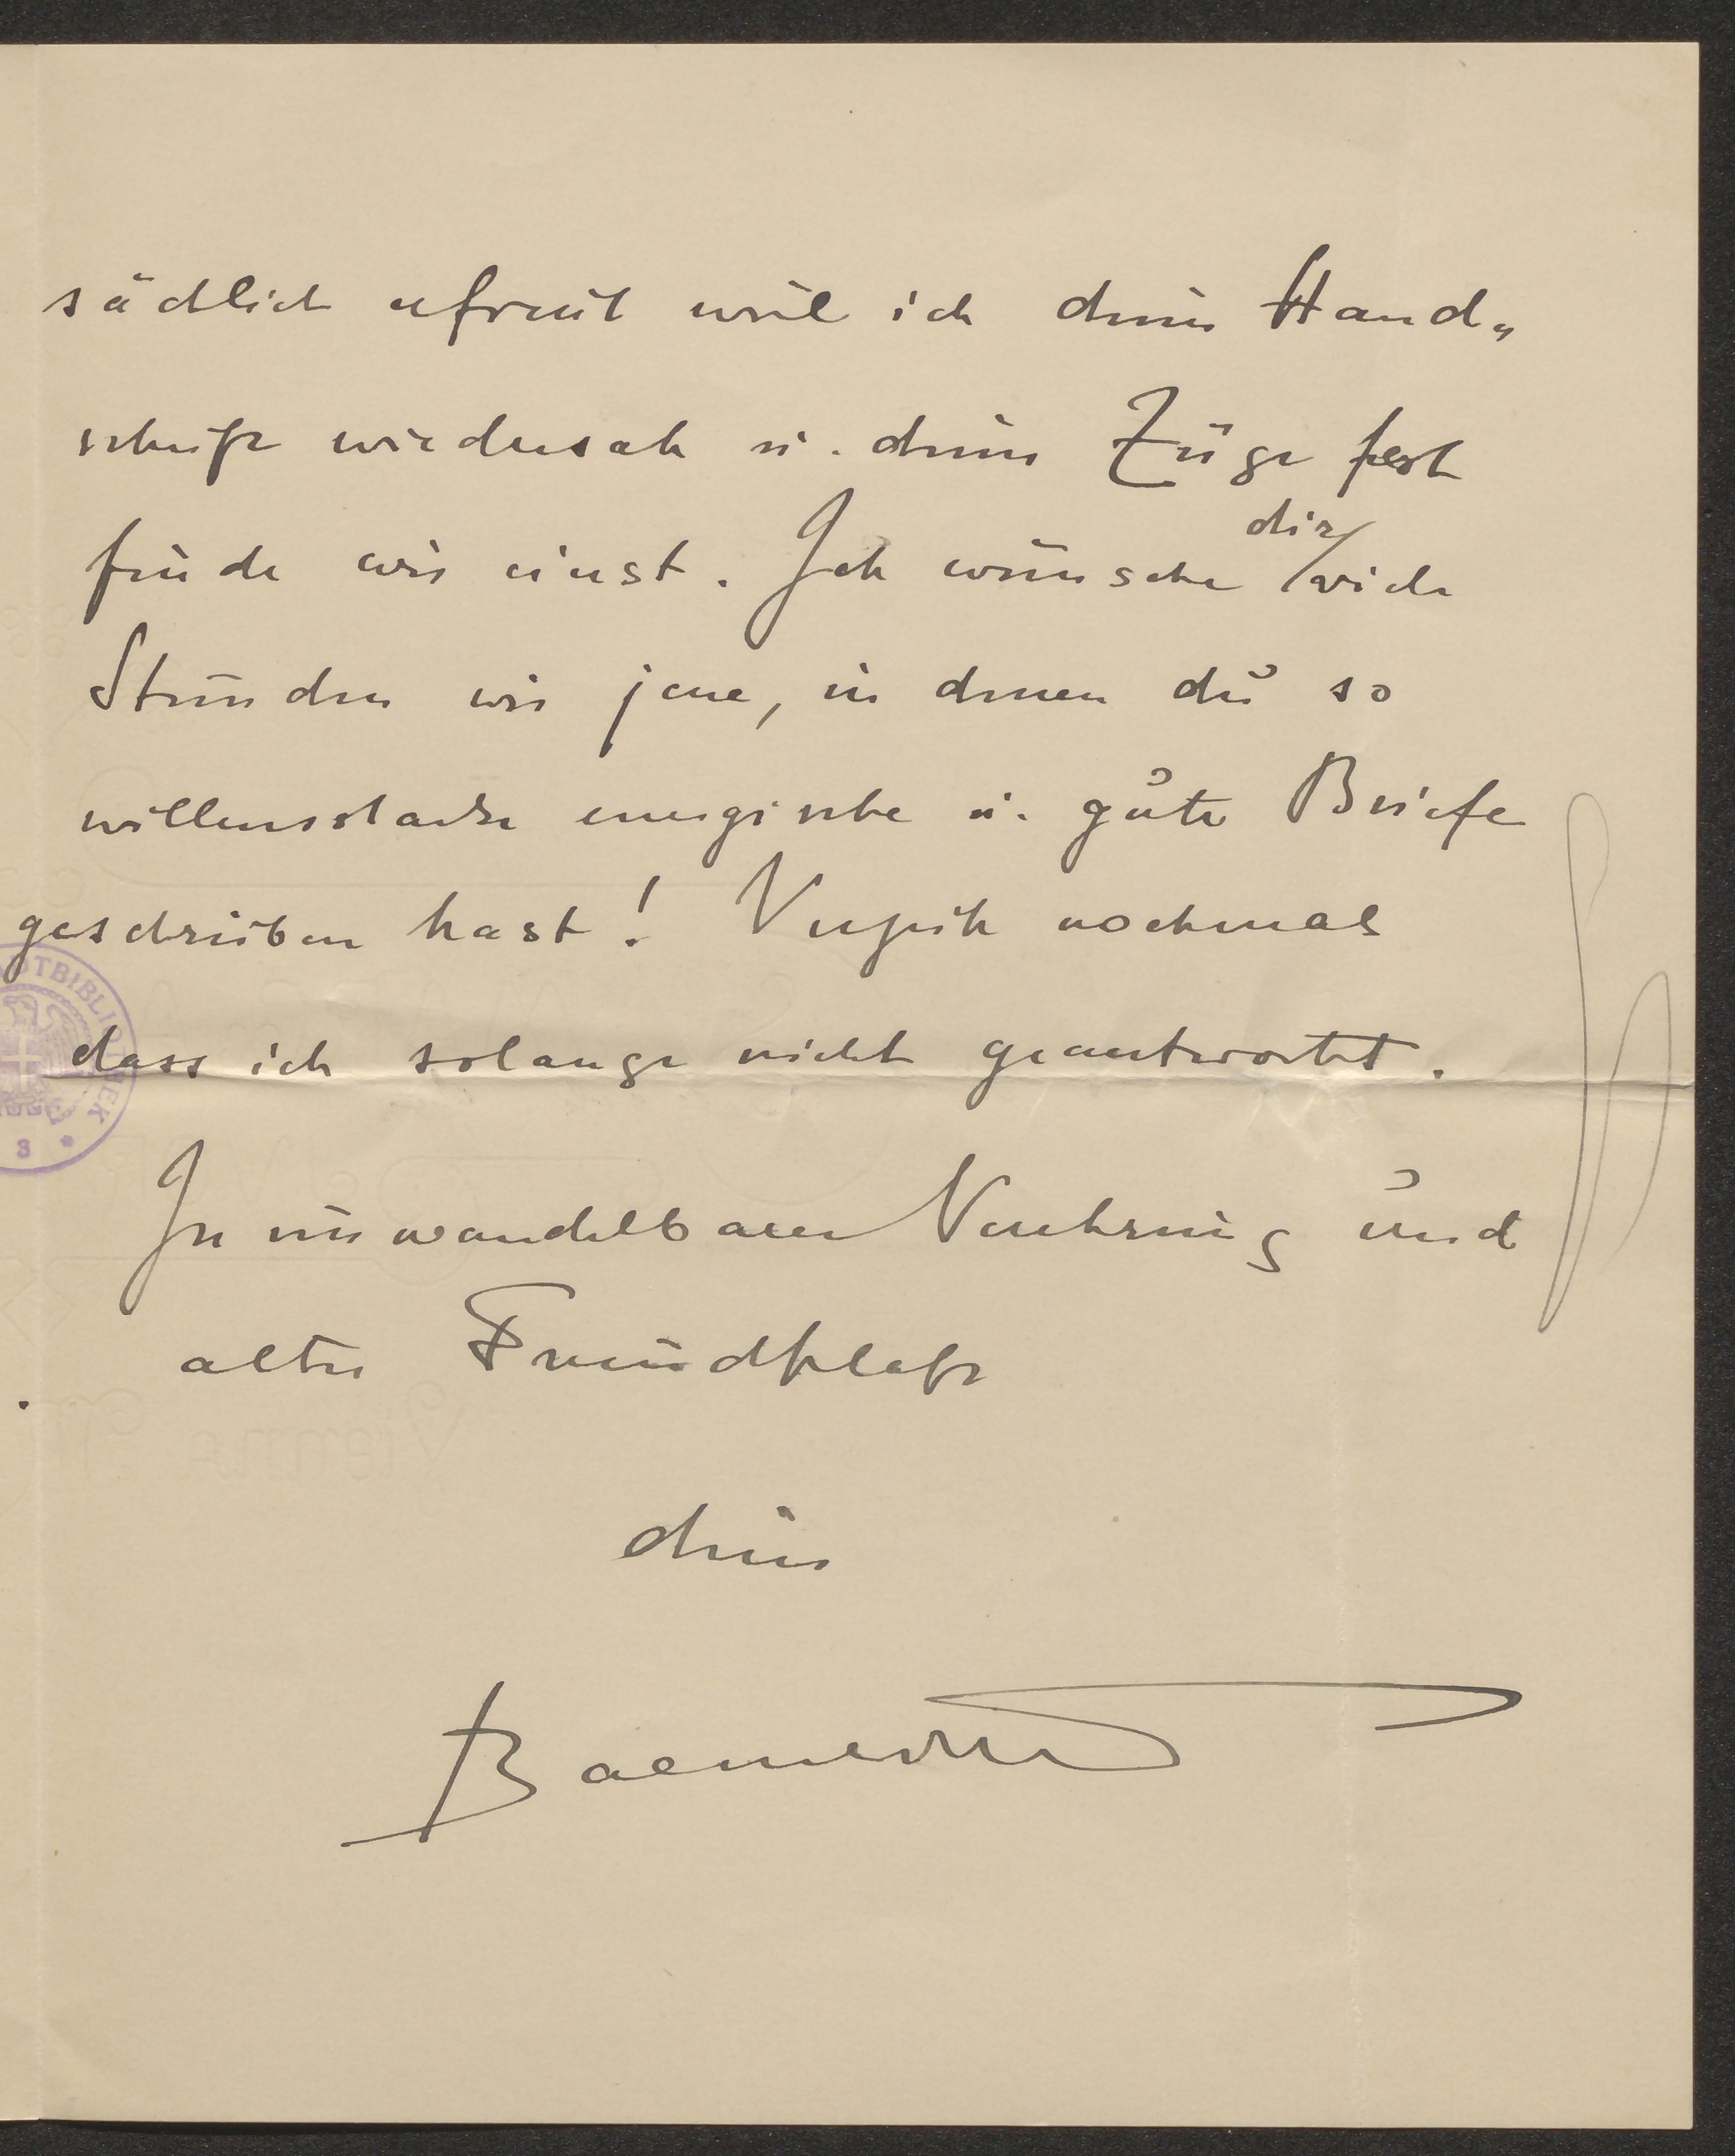 sächlich erfreut weil ich deine Hand„
schrift wiedersah u. deine Züge fest
finde wie einst. Ich wünsche dir viele
Stunden wie jene, in denen du so
willensstarke energische u. gute Briefe
geschrieben hast! Verzeih nochmals
dass ich solange nicht geantwortet.
In unwandelbarer Verehrung und
alter Freundschaft
dein